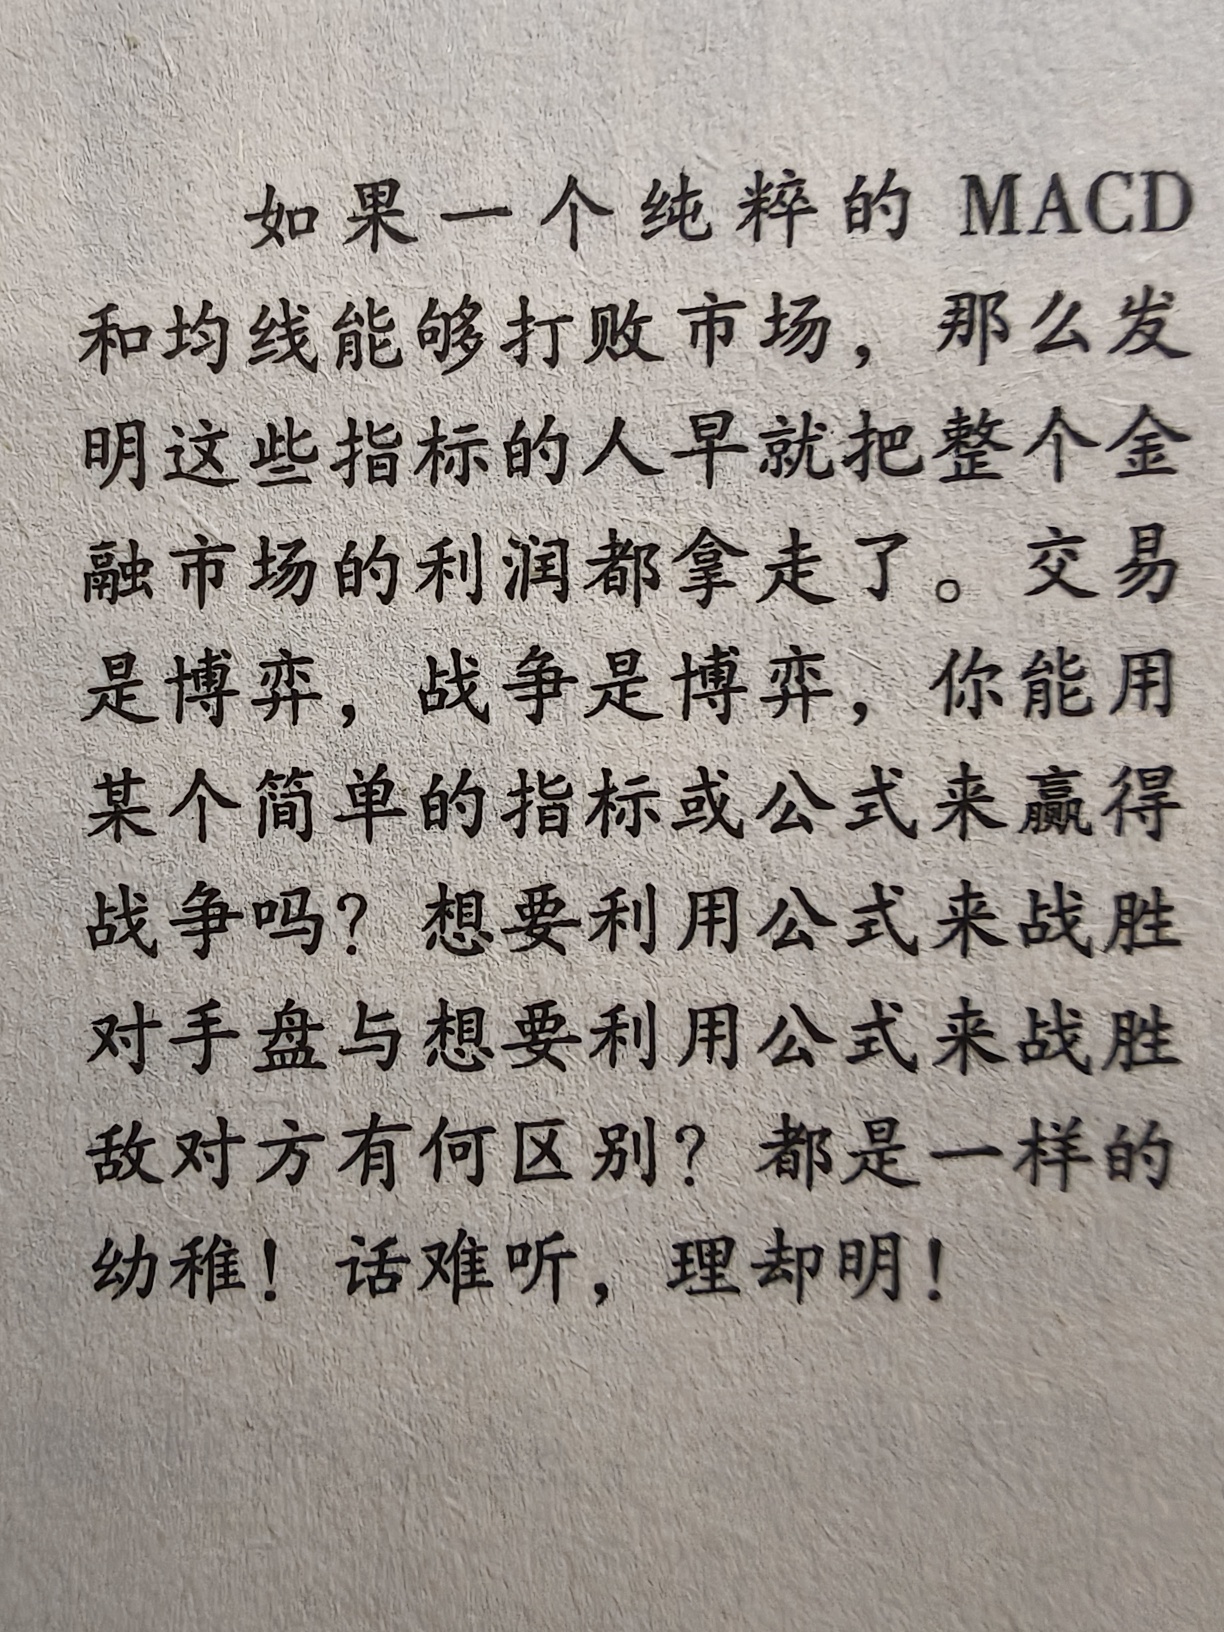 如果一个纯粹的 MACD
和均线能够打败市场，那么发
明这些指标的人早就把整个金
融市场的利润都拿走了。交易
是博弈，战争是博弈，你能用
某个简单的指标或公式来赢得
战争吗？想要利用公式来战胜
对手盘与想要利用公式来战胜
敌对方有何区别？都是一样的
幼稚！话难听，理却明！